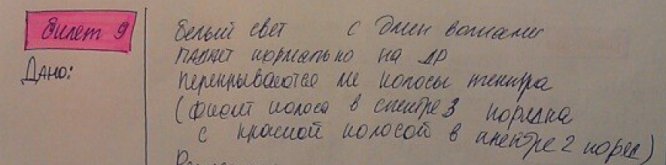 Билет 9
Дано:
Белый свет с длин волнами
падает нормально на др
перекрываются ли полосы спектра
(фиолет полоса в спектре 3 порядка
с красной полосой в спектре 2 поряд)